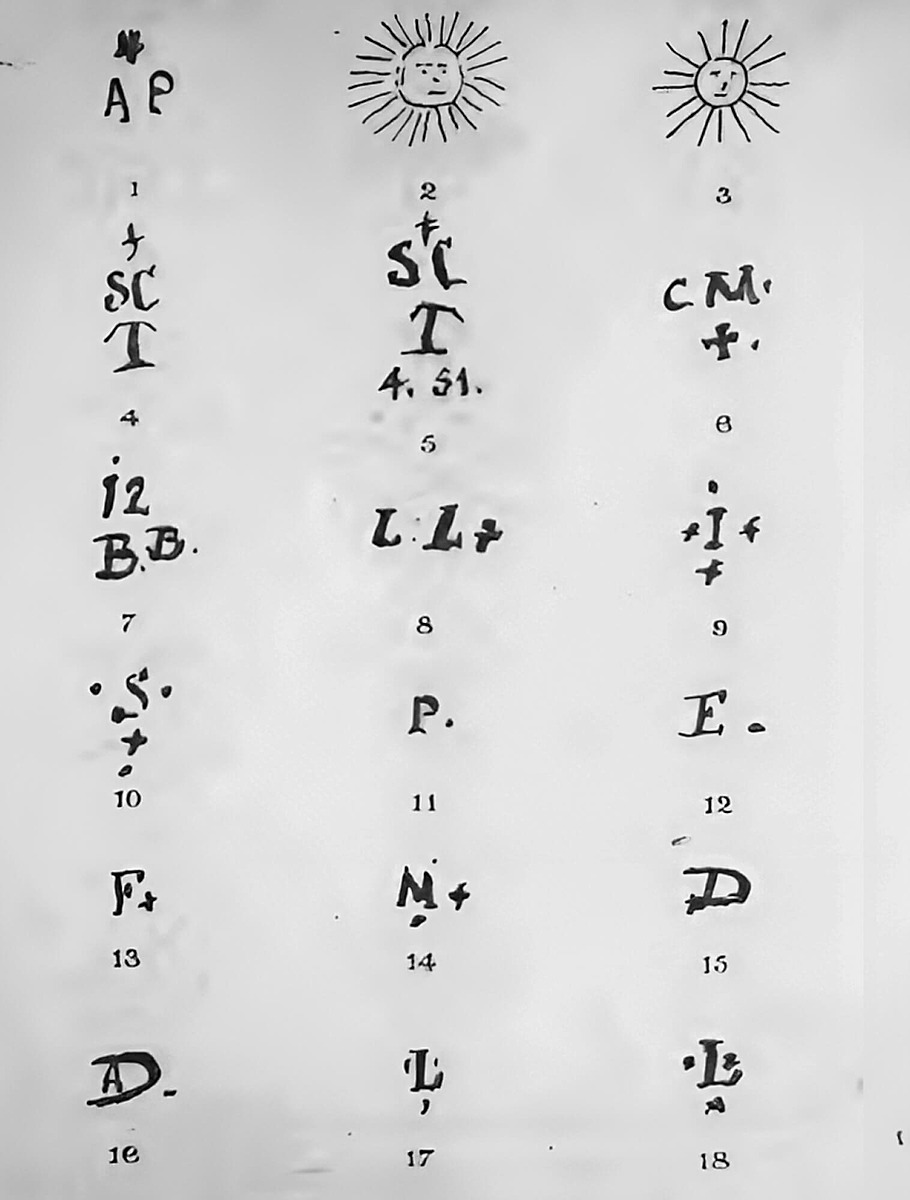 A P
1 2 3
+
SC
T
4
+
SC
T
4. 51.
5
C M.
+.
6
i2
B.B.
7
L : L +
8
+ I +
+
9
. S .
+
.
10
P.
11
E .
12
F+
13
M +
14
D
15
AD.
16
L
,
17
.L
18